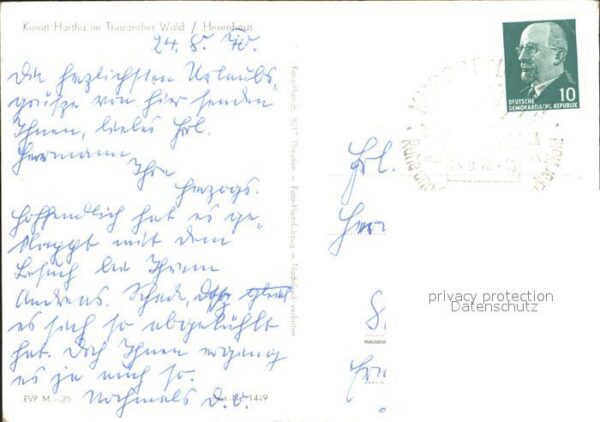 Kurort Hartha im Tharandter Wald / Hexenhaus
24. 8. 70.
Die herzlichsten Urlaubs-
grüße von hier senden
Ihnen, liebes Frl.
Herrmann
Ihre
Herzogs.
Hoffentlich hat es ge-
klappt mit dem
Besuch bei Ihrem
Andreas. Schade, daß
es sich so abgekühlt
hat. Doch Ihnen erging
es ja auch so.
Nochmals D. O.
EVP M -,25
1449
10
DEUTSCHE
DEMOKRATISCHE REPUBLIK
Frl.
Herr
privacy protection
Datenschutz